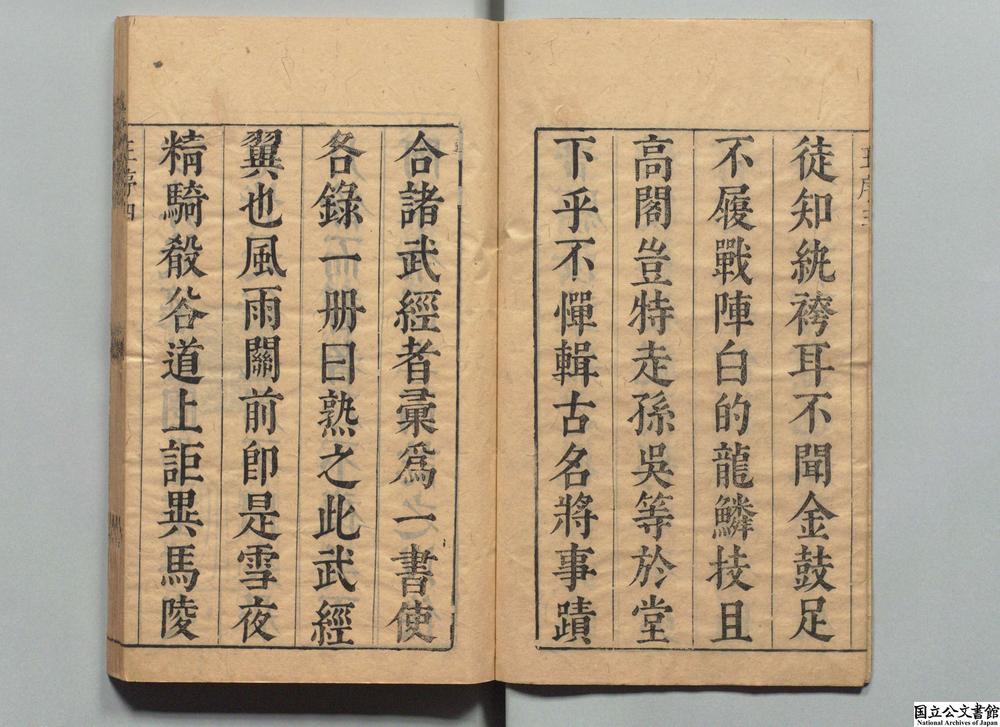 徒知紈袴耳不聞金鼓足
不履戰陣白的龍鱗技且
高閣豈特走孫吳等於堂
下乎不憚輯古名將事蹟
合諸武經者彙爲一書使
各錄一册曰熟之此武經
翼也風雨關前即是雪夜
精騎殽谷道上詎異馬陵
国立公文書館
National Archives of Japan